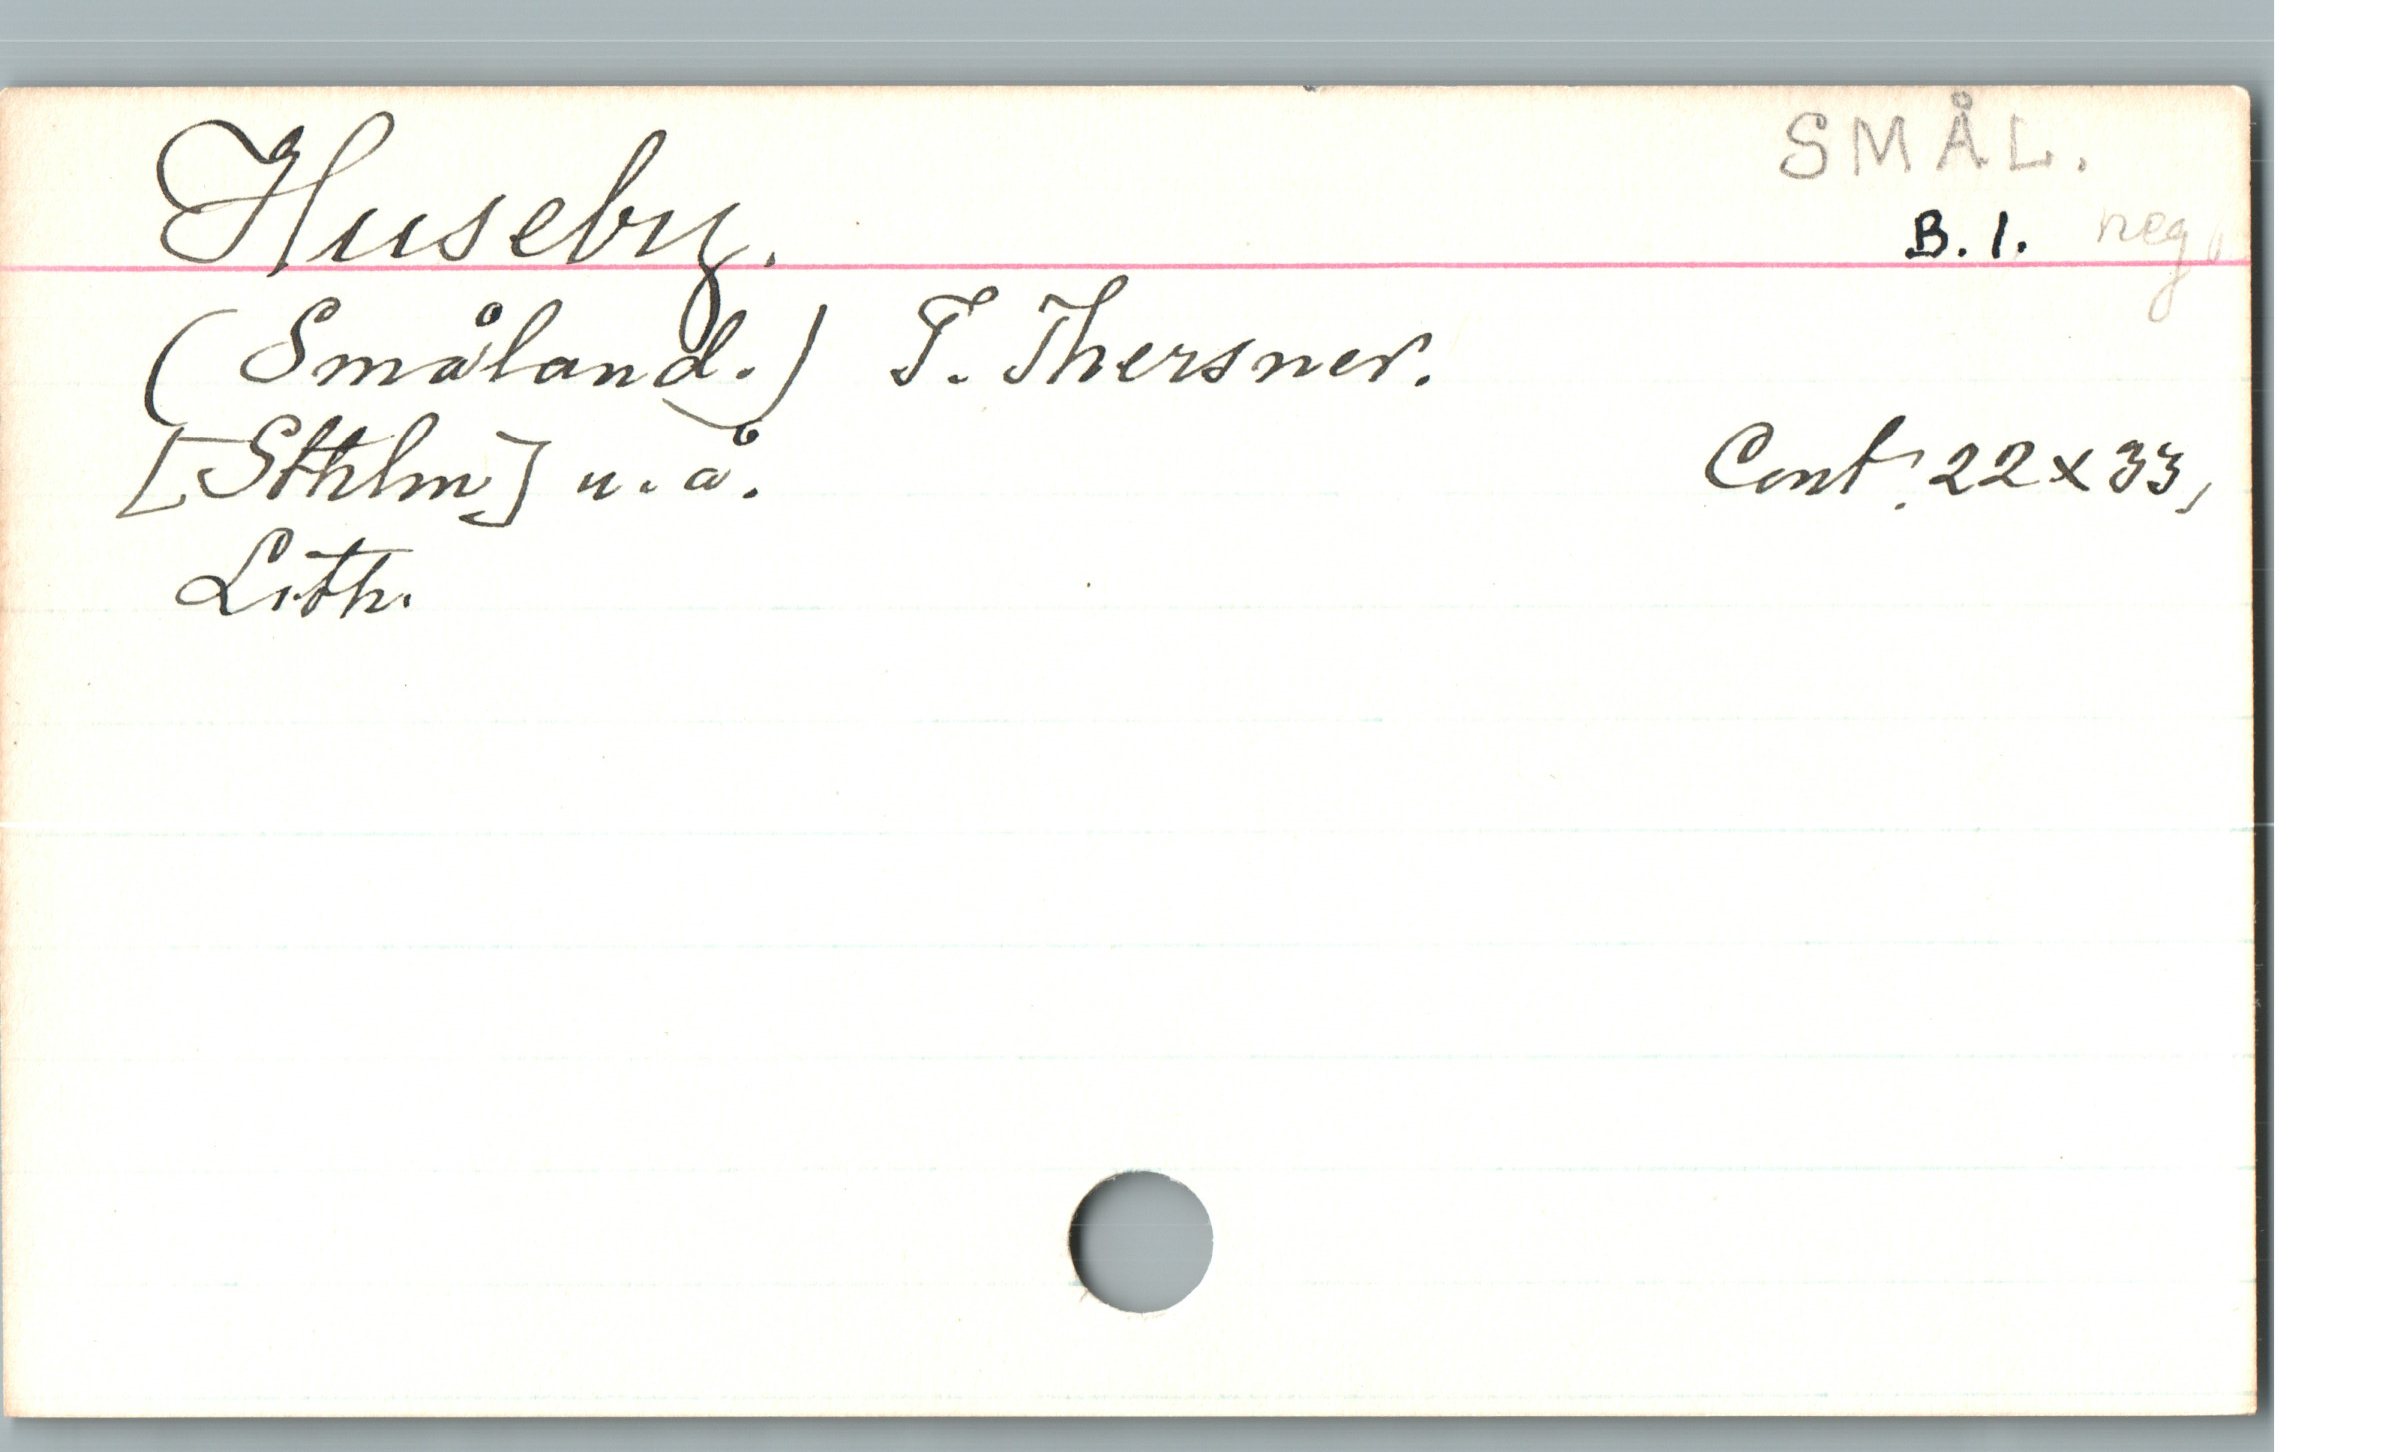 SMÅL.
Huseby.
B. 1. neg
(Småland.) T. Thersner.
[Sthlm] u. å.
Cont. 22 x 33,
Lith.